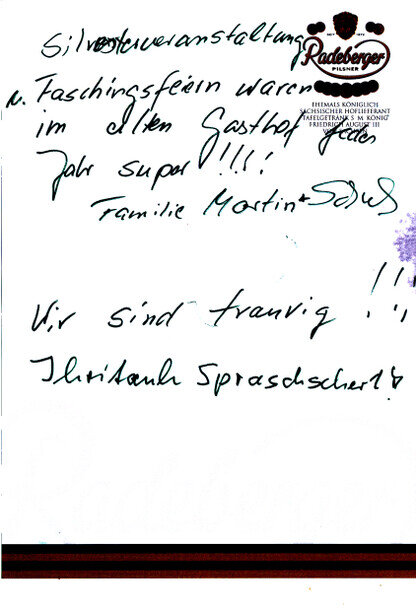 Silvesterveranstaltung
Radeberger
PILSNER
u. Faschingsfeiern waren
EHEMALS KÖNIGLICH
SÄCHSISCHER HOFLIEFERANT
TAFELGETRÄNK S. M. KÖNIG
FRIEDRICH AUGUST III
im alten Gasthof jedes
Jahr super !!!!
Familie Martin +
Wir sind traurig !!!